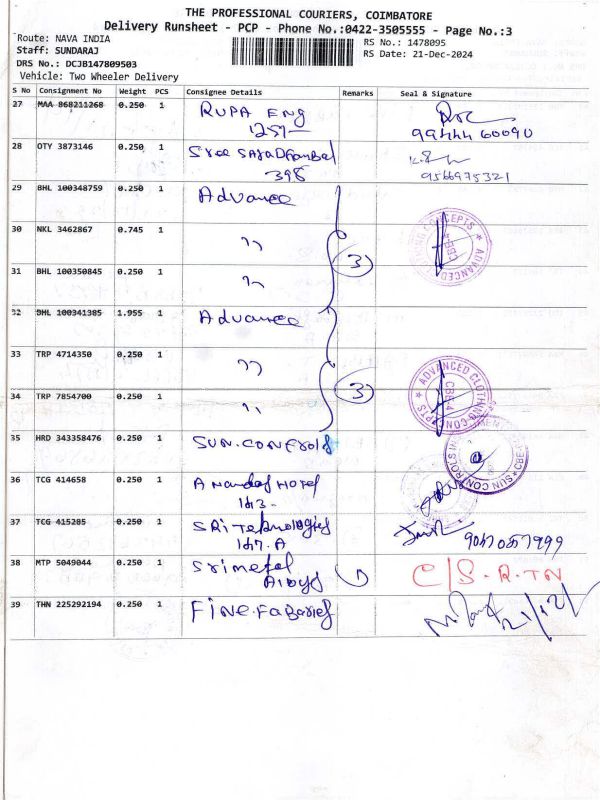 THE PROFESSIONAL COURIERS, COIMBATORE
Delivery Runsheet - PCP - Phone No.:0422-3505555 - Page No.:3
Route: NAVA INDIA
RS No.: 1478095
Staff: SUNDARAJ
RS Date: 21-Dec-2024
DRS No.: DCJB147809503
Vehicle: Two Wheeler Delivery
S No Consignment No Weight PCS Consignee Details Remarks Seal & Signature
27 MAA 868211268 0.250 1 RUPA ENG
1257-
28 OTY 3873146 0.250 1 Sree
398
9566975321
29 BHL 100348759 0.250 1 Advance
30 NKL 3462867 0.745 1 " 3
31 BHL 100350845 0.250 1 "
32 BHL 100341385 1.955 1 Advance
33 TRP 4714350 0.250 1 "
34 TRP 7854700 0.250 1 " 3
ADVANCED CLOTHING CONCEPTS
CBE-4
35 HRD 343358476 0.250 1 SUN.CONTROLS
SUN CONTROLS
36 TCG 414658 0.250 1 Anandas Hotel
163-
37 TCG 415285 0.250 1 SRi Teknologies
167.A
38 MTP 5049044 0.250 1 Srimetal Aloys 1 C/S.RTN
39 THN 225292194 0.250 1 FINE.FABARIES 21/12/